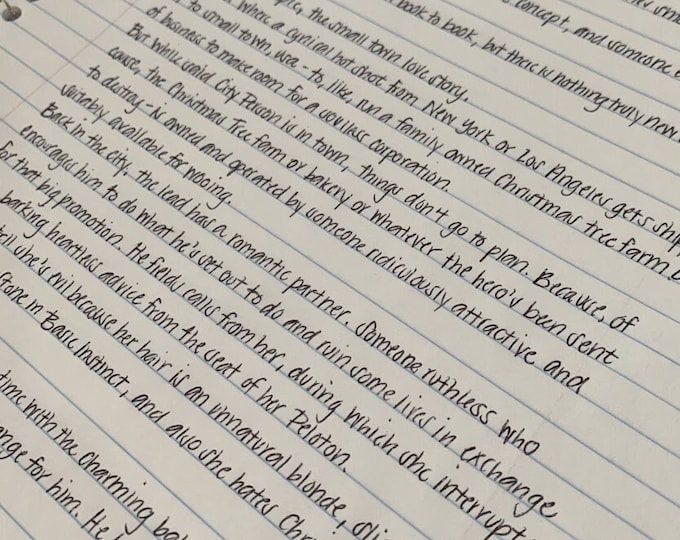 concept, and someone e
book to book, but there is nothing truly new
the small town love story.
where a cynical hotshot from New York or Los Angeles gets ship
to small town, USA - to, like, run a family owned Christmas tree farm
of business to make room for a soulless corporation.
But while said City Person is in town, things don't go to plan. Because, of
course, the Christmas Tree farm or bakery or whatever the hero's been sent
to destroy - is owned and operated by someone ridiculously attractive and
suitably available for wooing.
Back in the city, the lead has a romantic partner. Someone ruthless who
encourages him to do what he's set out to do and ruin some lives in exchange
for that big promotion. He fields calls from her, during which she interrupt
barking heartless advice from the seat of her Peloton.
she's evil because her hair is an unnatural blonde,
Stone in Basic Instinct, and also she hates Chr
time with the charming
ange for him. He